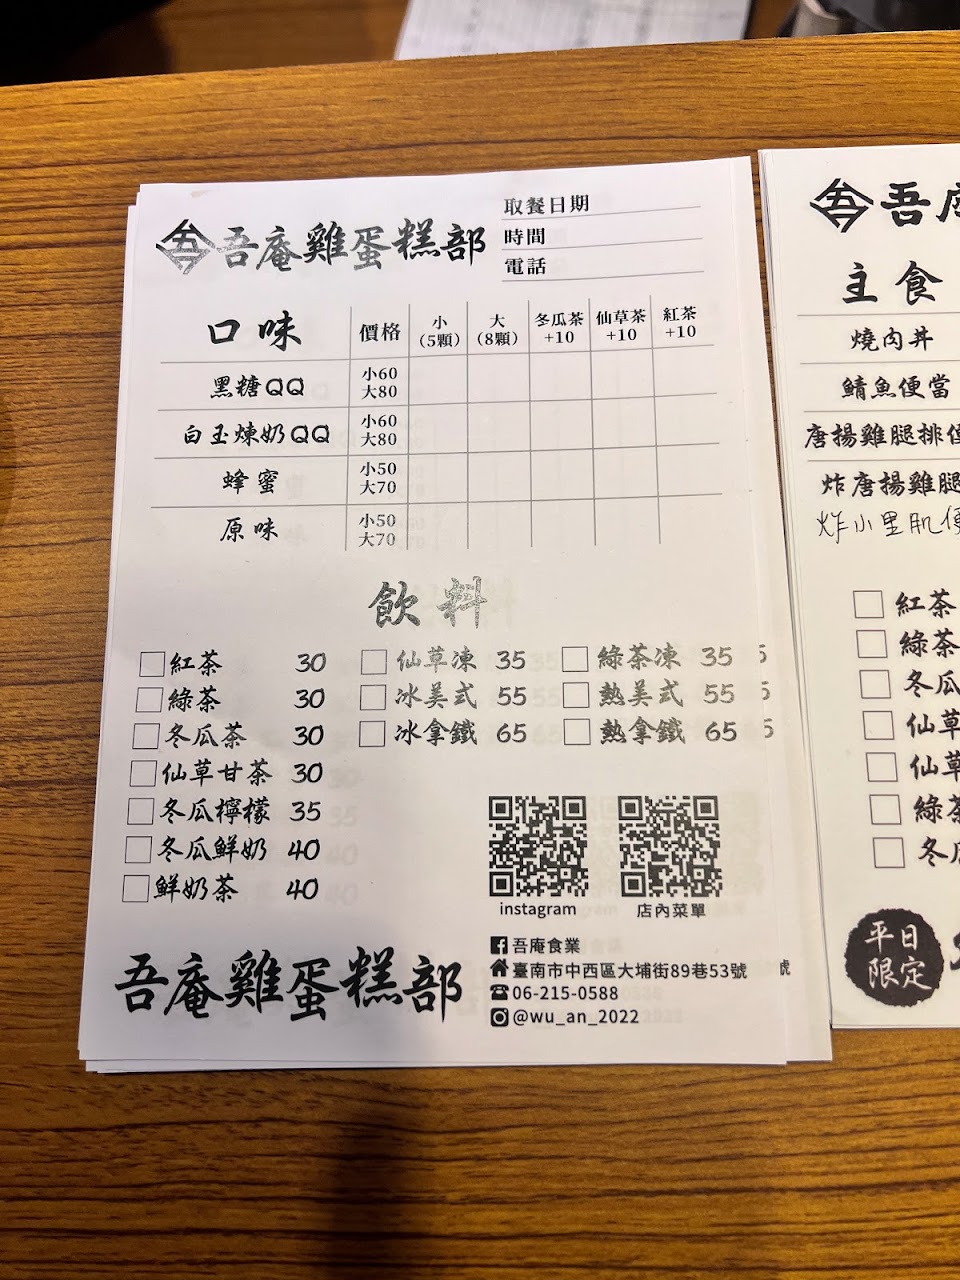 吾庵雞蛋糕部
取餐日期
時間
電話
口味 價格 小(5顆) 大(8顆) 冬瓜茶+10 仙草茶+10 紅茶+10
黑糖QQ 小60 大80
白玉煉奶QQ 小60 大80
蜂蜜 小50 大70
原味 小50 大70
飲料
紅茶 30 仙草凍 35 綠茶凍 35
綠茶 30 冰美式 55 熱美式 55
冬瓜茶 30 冰拿鐵 65 熱拿鐵 65
仙草甘茶 30
冬瓜檸檬 35
冬瓜鮮奶 40
鮮奶茶 40
instagram 店內菜單
吾庵雞蛋糕部
吾庵食業
臺南市中西區大埔街89巷53號
06-215-0588
@wu_an_2022
吾庵
主食
燒肉丼
鯖魚便當
唐揚雞腿排便
炸唐揚雞腿
炸小里肌便
紅茶
綠茶
冬瓜
仙草
仙草
綠茶
冬瓜
平日
限定